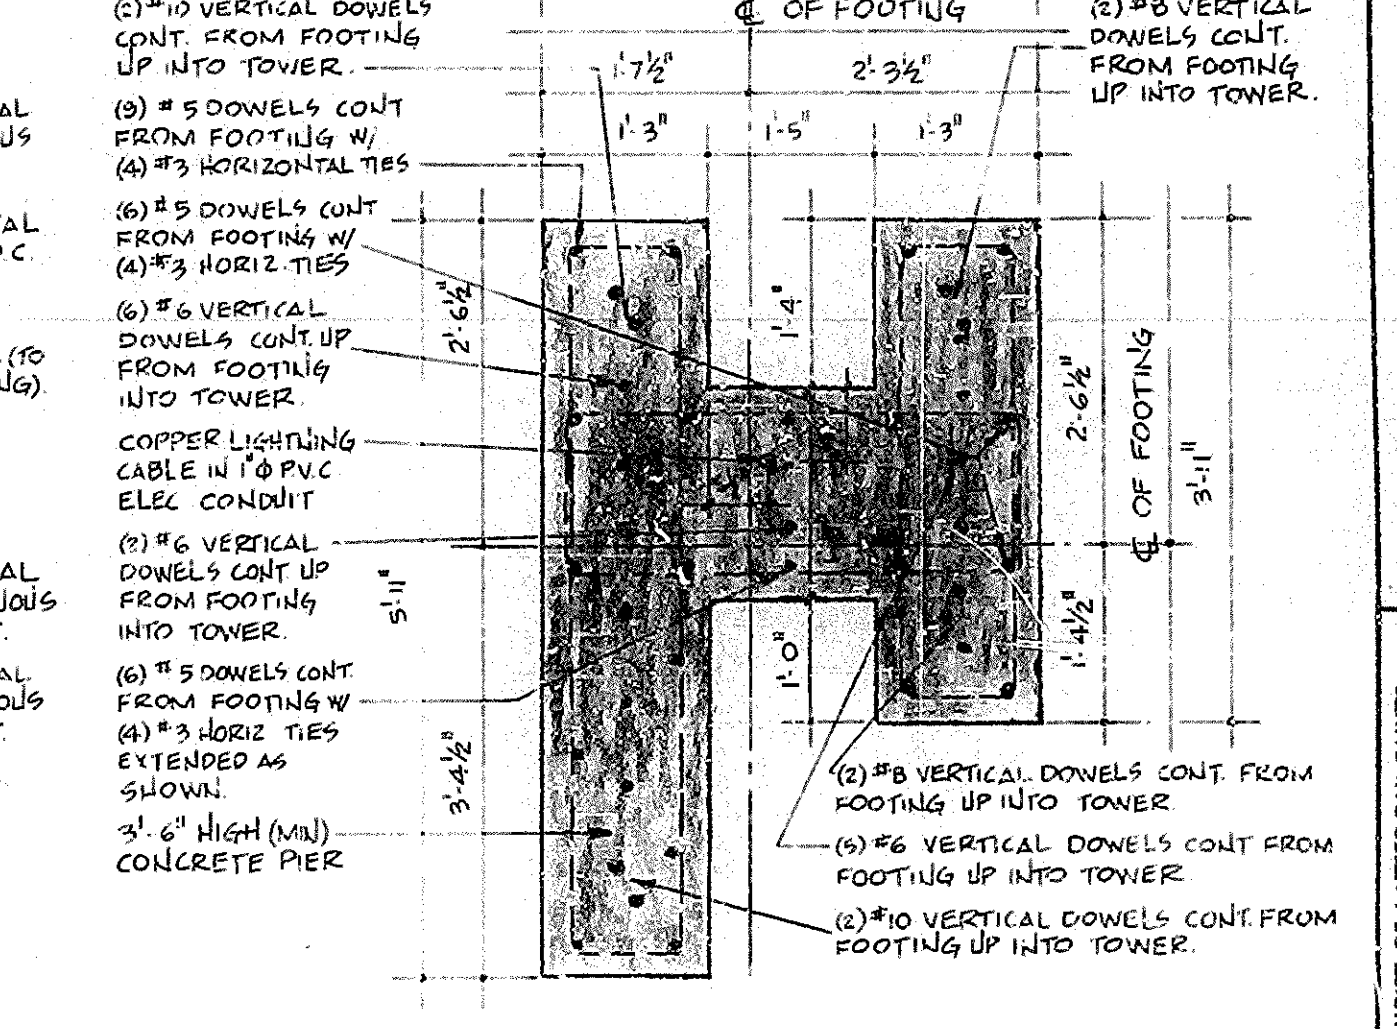 (2) #10 VERTICAL DOWELS
CONT. FROM FOOTING
UP INTO TOWER.
(9) #5 DOWELS CONT
FROM FOOTING W/
(4) #3 HORIZONTAL TIES
(6) #5 DOWELS CONT
FROM FOOTING W/
(4) #3 HORIZ. TIES
(6) #6 VERTICAL
DOWELS CONT. UP
FROM FOOTING
INTO TOWER.
COPPER LIGHTNING
CABLE IN 1"Φ P.V.C
ELEC CONDUIT
(2) #6 VERTICAL
DOWELS CONT UP
FROM FOOTING
INTO TOWER.
(6) #5 DOWELS CONT.
FROM FOOTING W/
(4) #3 HORIZ TIES
EXTENDED AS
SHOWN.
3'-6" HIGH (MIN)
CONCRETE PIER
AL
US
AL
C.
(TO
NG).
AL
UOUS
AL
OUS
℄ OF FOOTING
1'-7½"
2'-3½"
1'-3"
1'-5"
1'-3"
(2) #8 VERTICAL
DOWELS CONT.
FROM FOOTING
UP INTO TOWER.
2'-6½"
1'-4"
2'-6½"
℄ OF FOOTING
3'-11"
5'-11"
1'-0"
1'-4½"
3'-4½"
(2) #8 VERTICAL DOWELS CONT. FROM
FOOTING UP INTO TOWER
(5) #6 VERTICAL DOWELS CONT FROM
FOOTING UP INTO TOWER
(2) #10 VERTICAL DOWELS CONT. FROM
FOOTING UP INTO TOWER.